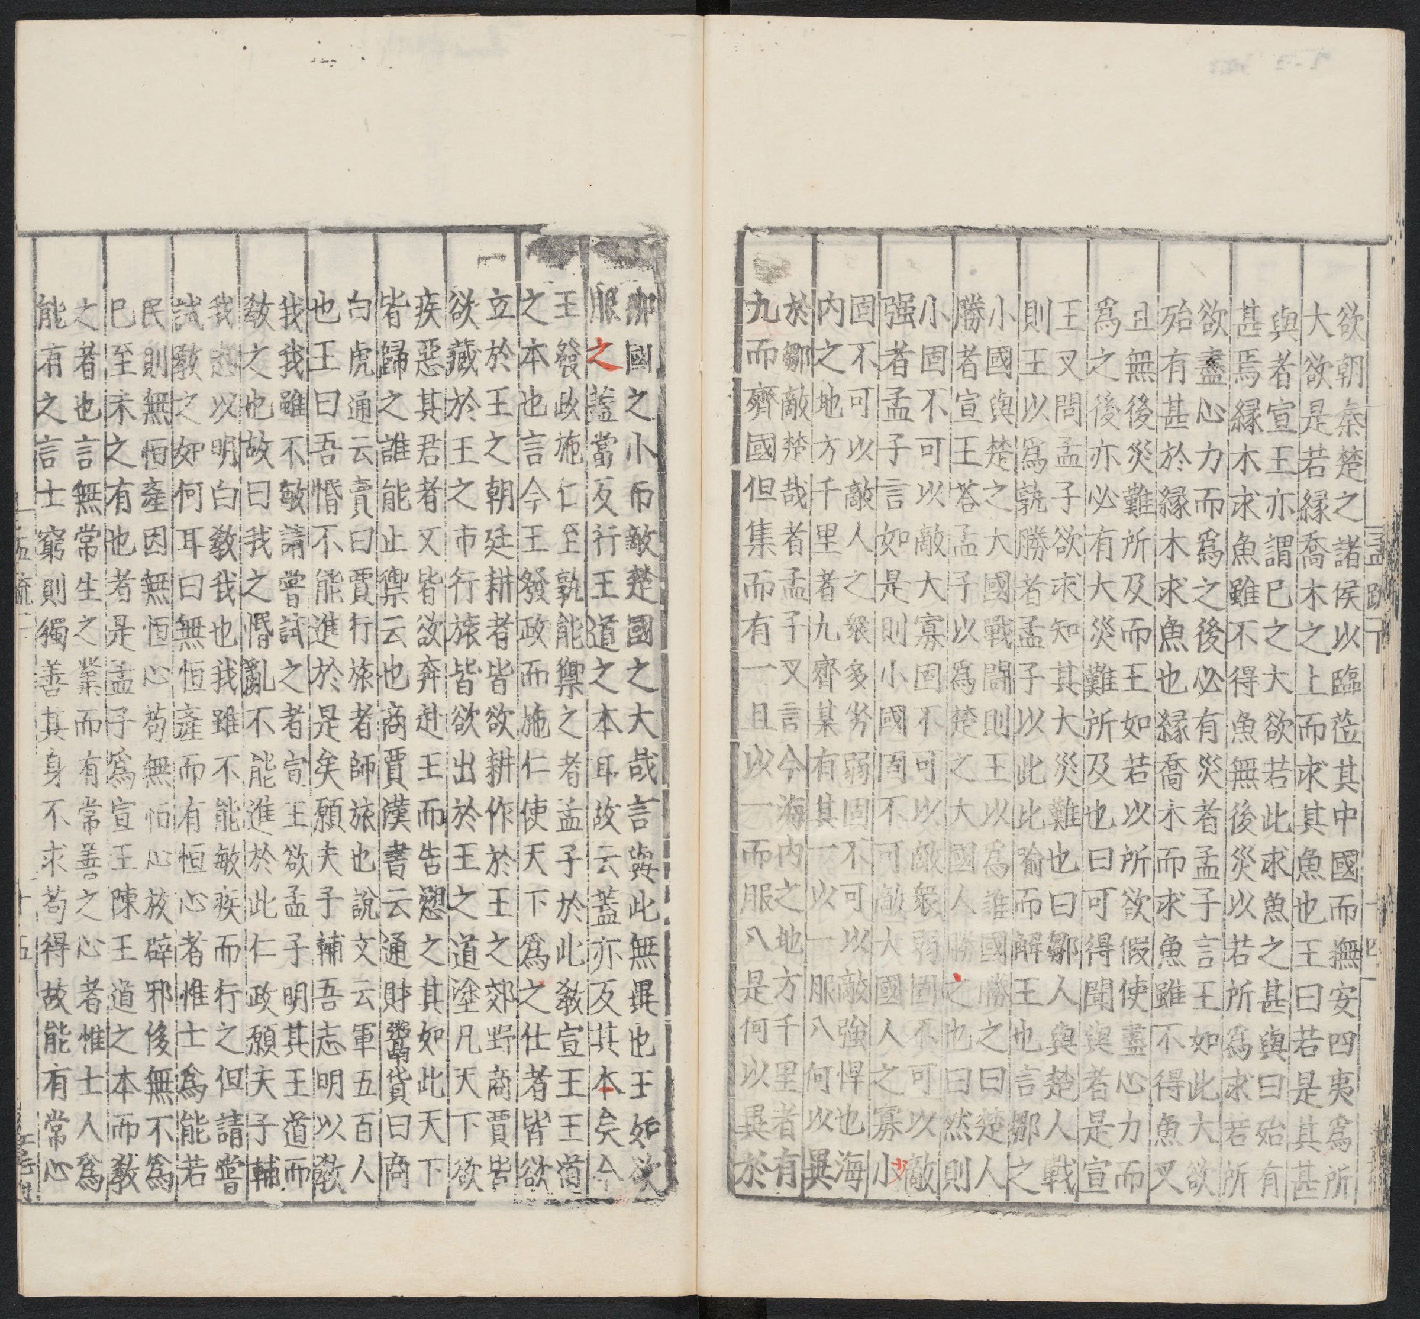 欲朝秦楚之諸侯以臨莅其中國而撫安四夷爲所
大欲是若縁喬木之上而求其魚也王曰若是其甚
與者宣王亦謂巳之大欲若此求魚之甚與曰殆有
甚焉縁木求魚雖不得魚無後災以若所爲求若所
欲盡心力而爲之後必有災者孟子言王如此大欲
殆有甚於縁木求魚也縁喬木而求魚雖不得魚又
且無後災難所及而王如若以所欲假使盡心力而
爲之後亦必有大災難所及也曰可得聞與者是宣
王又問孟子欲求知其大災難也曰鄒人與楚人戰
則王以爲孰勝者孟子以此比喻而解王也言鄒之
小國與楚之大國戰鬪則王以爲誰國勝之曰楚人
勝者宣王荅孟子以爲楚之大國人勝之也曰然則
小固不可以敵大寡固不可以敵衆弱固不可以敵
强者孟子言如是則小國固不可敵大國人之寡小
固不可以敵人之衆多劣弱固不可以敵強悍也海
内之地方千里者九齊某有其一以一服八何以異
於鄒敵楚哉者孟子又言今海内之地方千里者有
九而齊國但集而有一且以一而服八是何以異於
孟䟽一下
十四
鄒國之小而敵楚國之大哉言與此無異也王如欲
服之蓋當反行王道之本耳故云蓋亦反其本矣今
王發政施仁至孰能禦之者孟子於此敎宣王王道
之本也言今王發政而施仁使天下爲之仕者皆欲
立於王之朝廷耕者皆欲耕作於王之郊野商賈皆
欲藏於王之市行旅皆欲出於王之道塗凡天下欲
疾惡其君者又皆欲奔赴王而告愬之其如此天下
皆歸之誰能止禦云也商賈漢書云通財鬻貨曰商
白虎通云賣曰賈行旅者師旅也說文云軍五百人
也王曰吾惛不能進於是矣願夫子輔吾志明以敎
我我雖不敏請嘗試之者宣王欲孟子明其王道而
敎之也故曰我之惛亂不能進於此仁政願夫子輔
我志以明白敎我也我雖不能敏疾而行之但請嘗
試敎之如何耳曰無恒產而有恒心者惟士爲能若
民則無恒產因無恒心苟無恒心放辟邪後無不爲
巳至未之有也者是孟子爲宣王陳王道之本而敎
之者也言無常生之業而有常善之心者惟士人爲
能有之言士窮則獨善其身不求苟得故能有常心
孟䟽一下
十五